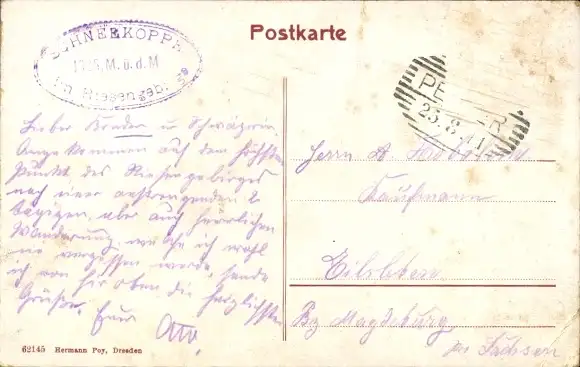 Postkarte
SCHNEEKOPPE
1605 M. ü. d. M
im Riesengeb.
PE ER
23.8.11
Lieber Bruder u Schwägerin
Angekommen auf dem höchsten
Punkt des Riesengebirges
nach einer anstrengenden 2
tägigen, aber auch herrlichen
Wanderung, welche ich wohl
nie vergessen werde, sende
ich von hir oben die herzlichsten
Grüße. Euer Otto.
Herrn A
Kaufmann
Eilsleben
Bz Magdeburg
Prv Sachsen
62145 Hermann Poy, Dresden